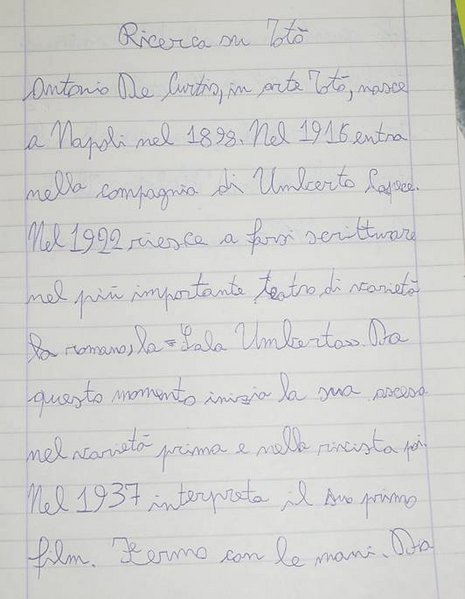 Ricerca su Totò
Antonio De Curtis, in arte Totò, nasce
a Napoli nel 1898. Nel 1916 entra
nella compagnia di Umberto Capece.
Nel 1922 riesce a farsi scritturare
nel più importante teatro di varietà
romano, la "Sala Umberto". Da
questo momento inizia la sua ascesa
nel varietà prima e nella rivista poi.
Nel 1937 interpreta il suo primo
film. Fermo con le mani. Da